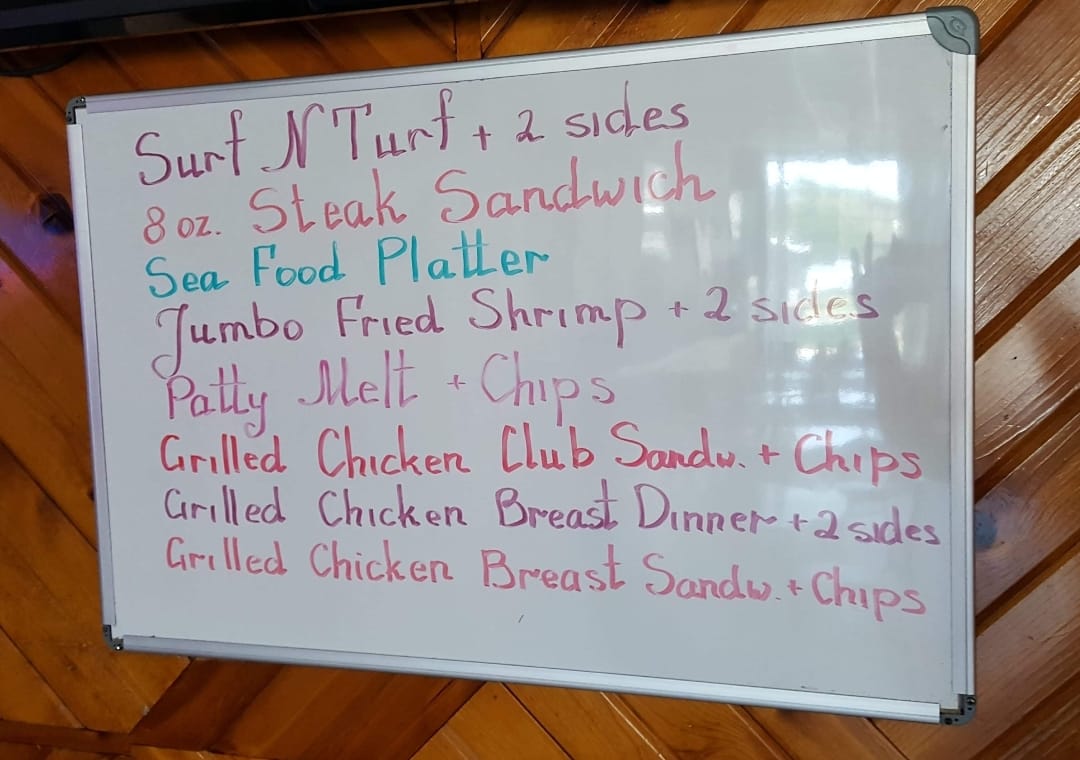 Surf N Turf + 2 sides
8 oz. Steak Sandwich
Sea Food Platter
Jumbo Fried Shrimp + 2 sides
Patty Melt + Chips
Grilled Chicken Club Sandw. + Chips
Grilled Chicken Breast Dinner + 2 sides
Grilled Chicken Breast Sandw. + Chips